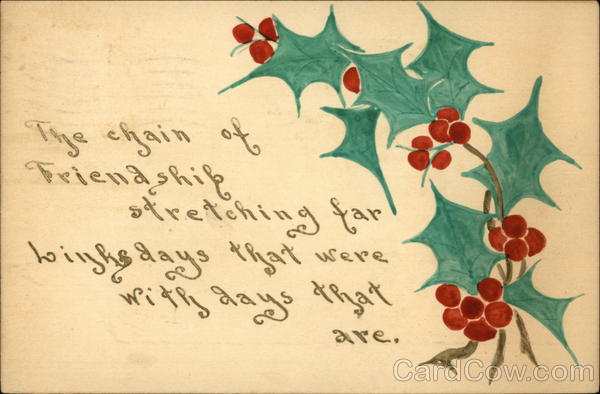 The chain of
Friendship
stretching far
Links days that were
with days that
are.
CardCow.com